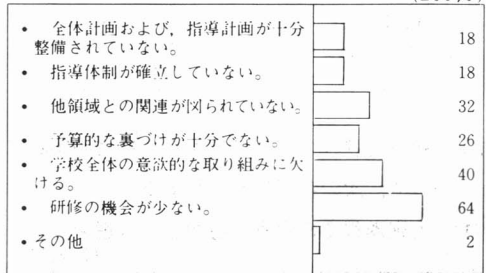 ・ 全体計画および，指導計画が十分
整備されていない。 18
・ 指導体制が確立していない。 18
・ 他領域との関連が図られていない。 32
・ 予算的な裏づけが十分でない。 26
・ 学校全体の意欲的な取り組みに欠
ける。 40
・ 研修の機会が少ない。 64
・その他 2